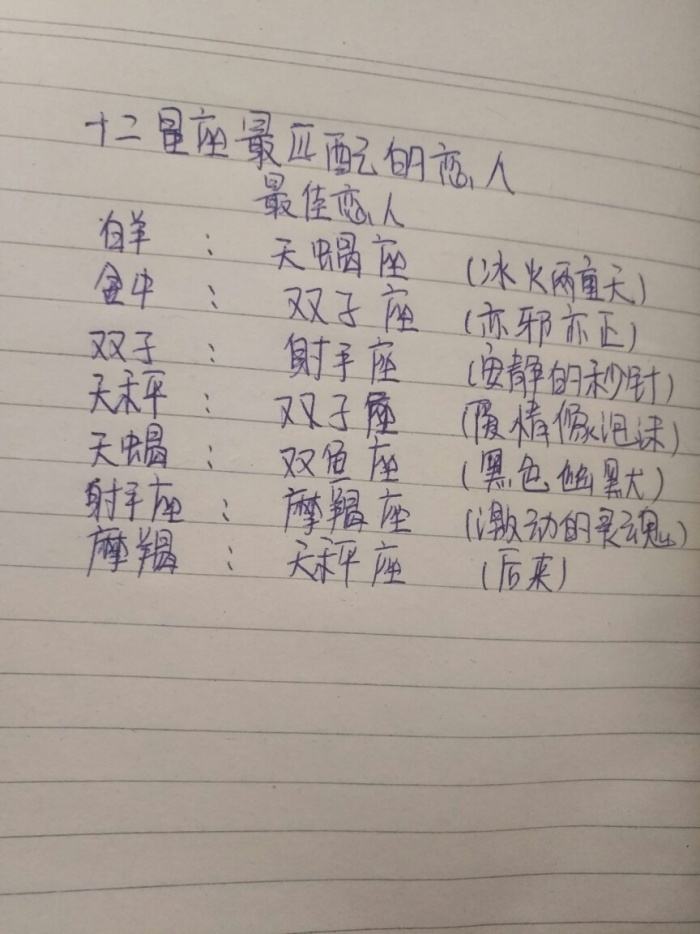 十二星座最匹配的恋人
最佳恋人
白羊 : 天蝎座 (冰火两重天)
金牛 : 双子座 (亦邪亦正)
双子 : 射手座 (安静的秒针)
天秤 : 双子座 (爱情像泡沫)
天蝎 : 双鱼座 (黑色幽默)
射手座 : 摩羯座 (激动的灵魂)
摩羯 : 天秤座 (后来)